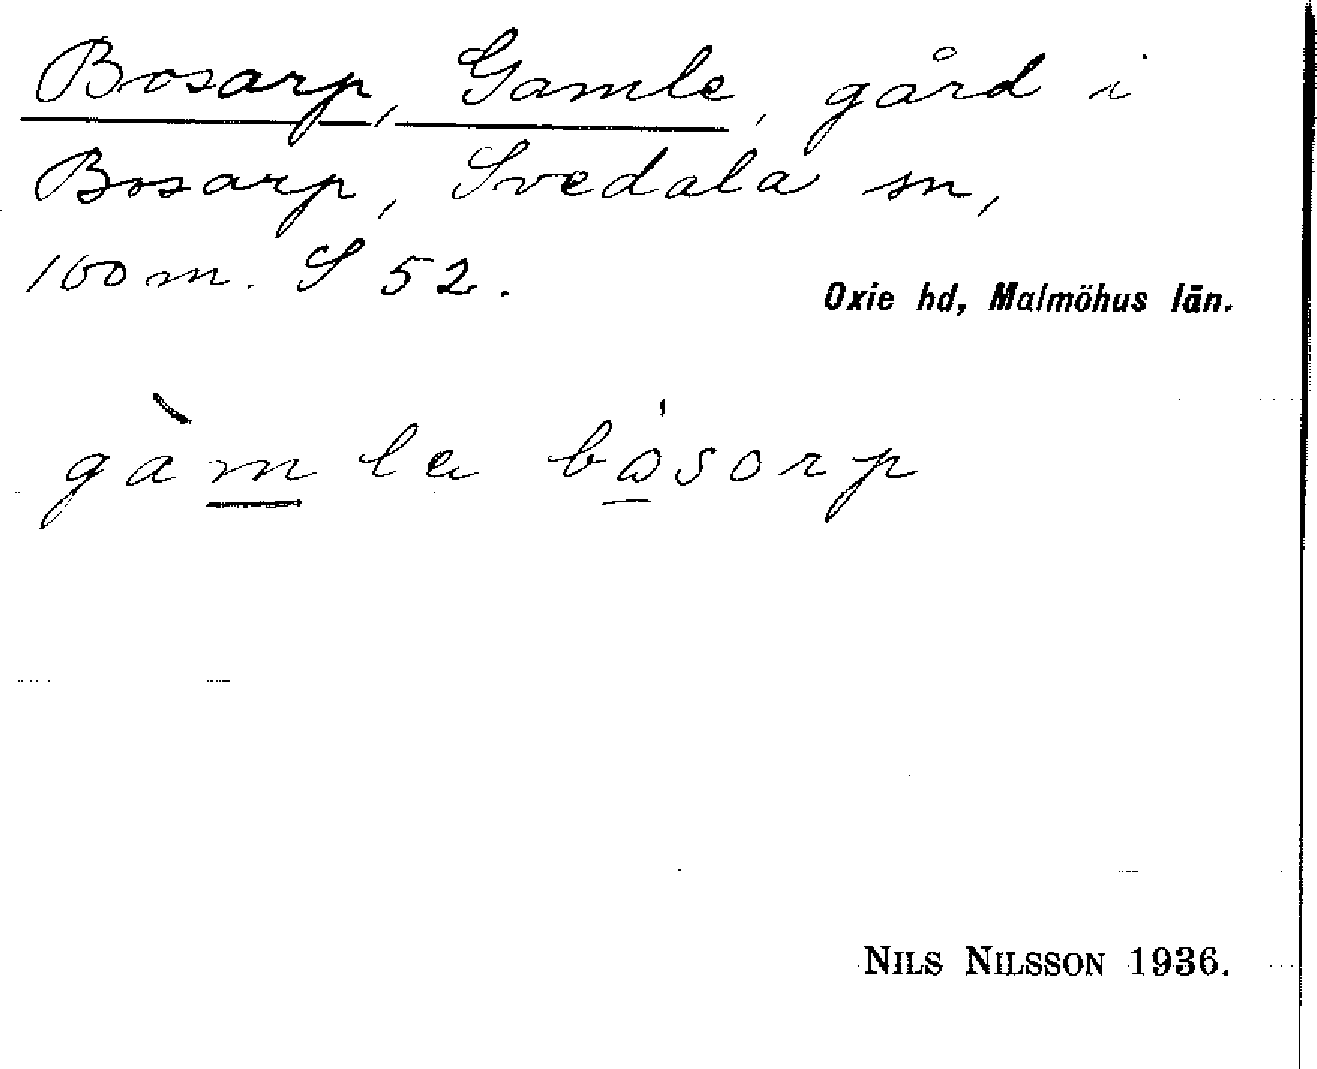 Bosarp, Gamle, gård i
Bosarp, Svedala sn,
100 m. S 52.
Oxie hd, Malmöhus län.
gàmla bósorp
NILS NILSSON 1936.